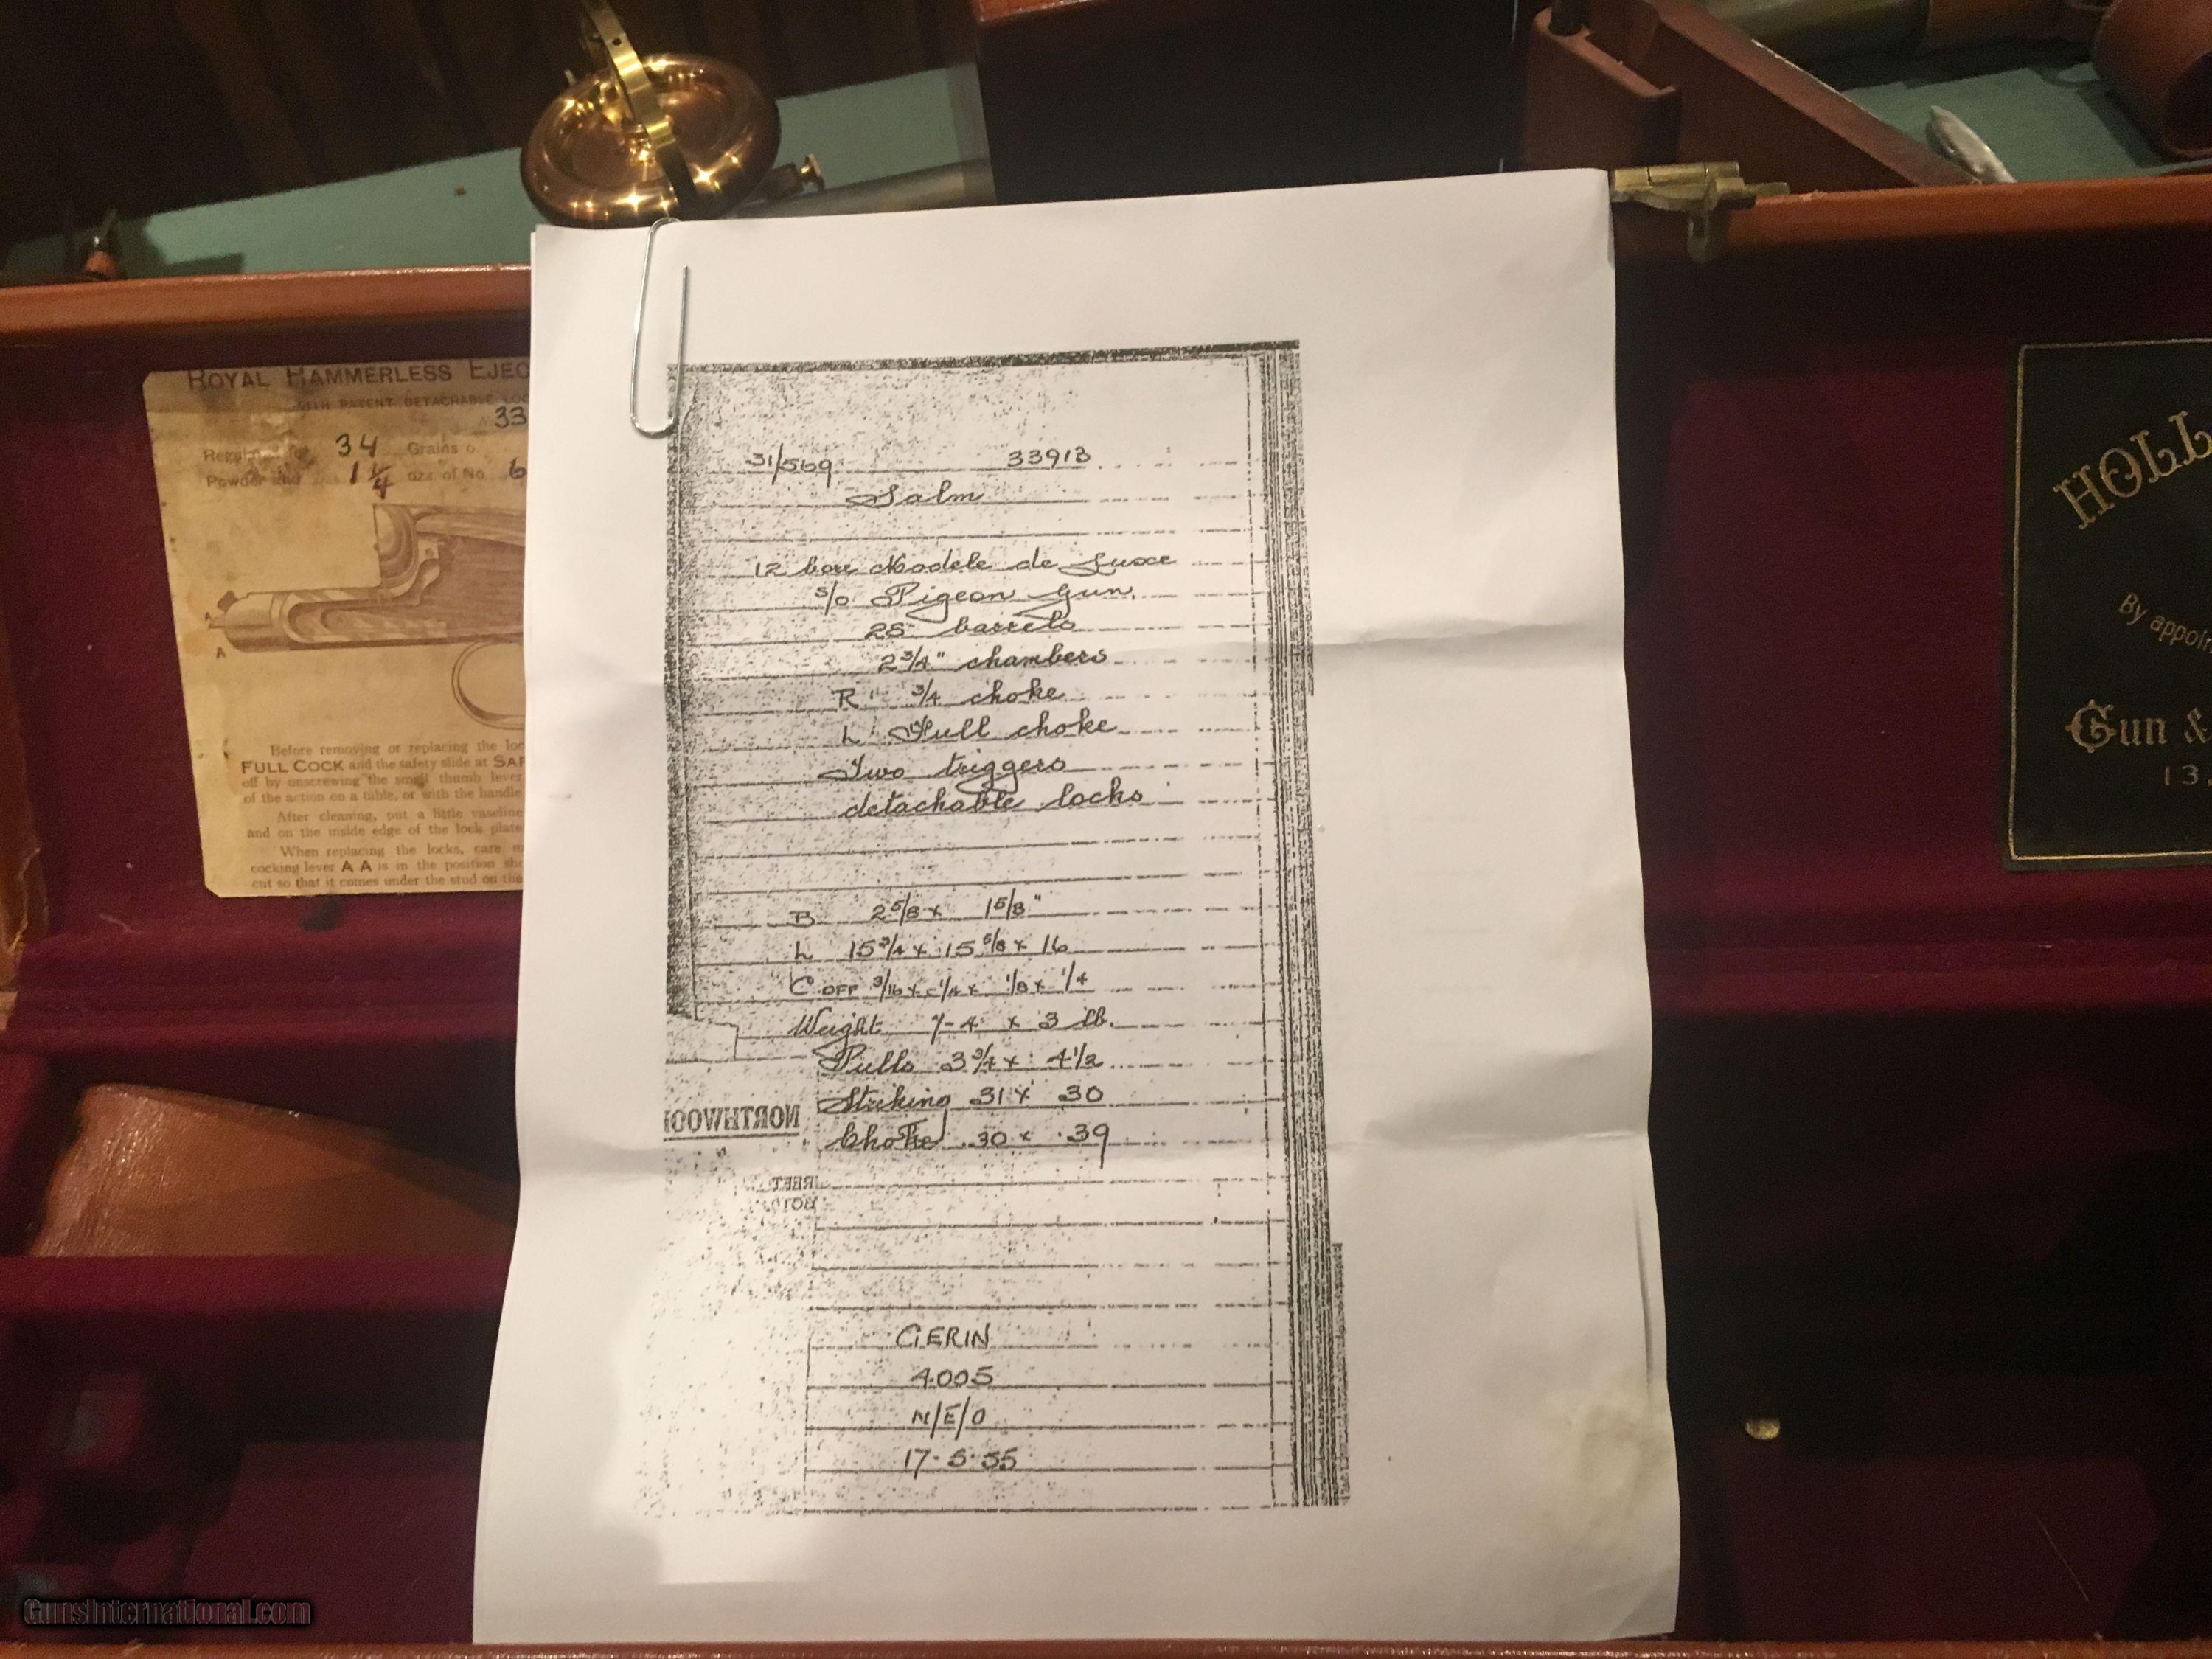 ROYAL HAMMERLESS EJEC
WITH PATENT DETACHABLE LOC
33
34 Grains o
Powder and 1 1/4 ozs. of No 6
A
Before removing or replacing the loc
FULL COCK and the safety slide at SAF
off by unscrewing the small thumb lever
of the action on a table, or with the handle
After cleaning, put a little vaseline
and on the inside edge of the lock plate
When replacing the locks, care m
cocking lever A A is in the position sho
cut so that it comes under the stud on the
31/569 33913
Salm
12 bore Modele de Luxe
S/O Pigeon Gun.
28" barrels
2 3/4" chambers
R 3/4 choke
L Full choke
Two triggers
detachable locks
B 2 5/8 x 1 5/8"
L 15 3/4 x 15 5/8 x 16
C OFF 3/16 x 1/4 x 1/8 x 1/4
Weight 7-4 x 3 lb.
Pulls 3 3/4 x 4 1/2
Striking 31 x 30
Choke .30 x .39
NORTHWOO
REET
GERIN
4005
N/E/O
17.5.55
HOLL
By appoin
Gun &
13.
GunsInternational.com